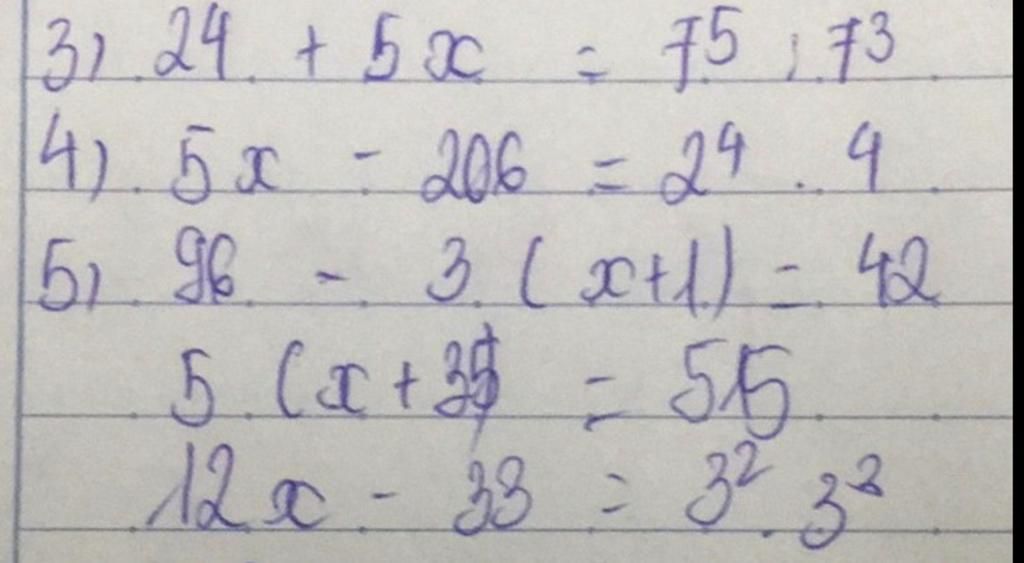 3) 24 + 5x = 7⁵ : 7³
4) 5x - 206 = 2⁴ . 4
5) 96 - 3 (x+1) = 42
5 (x + 35) = 515
12x - 33 = 3² . 3³